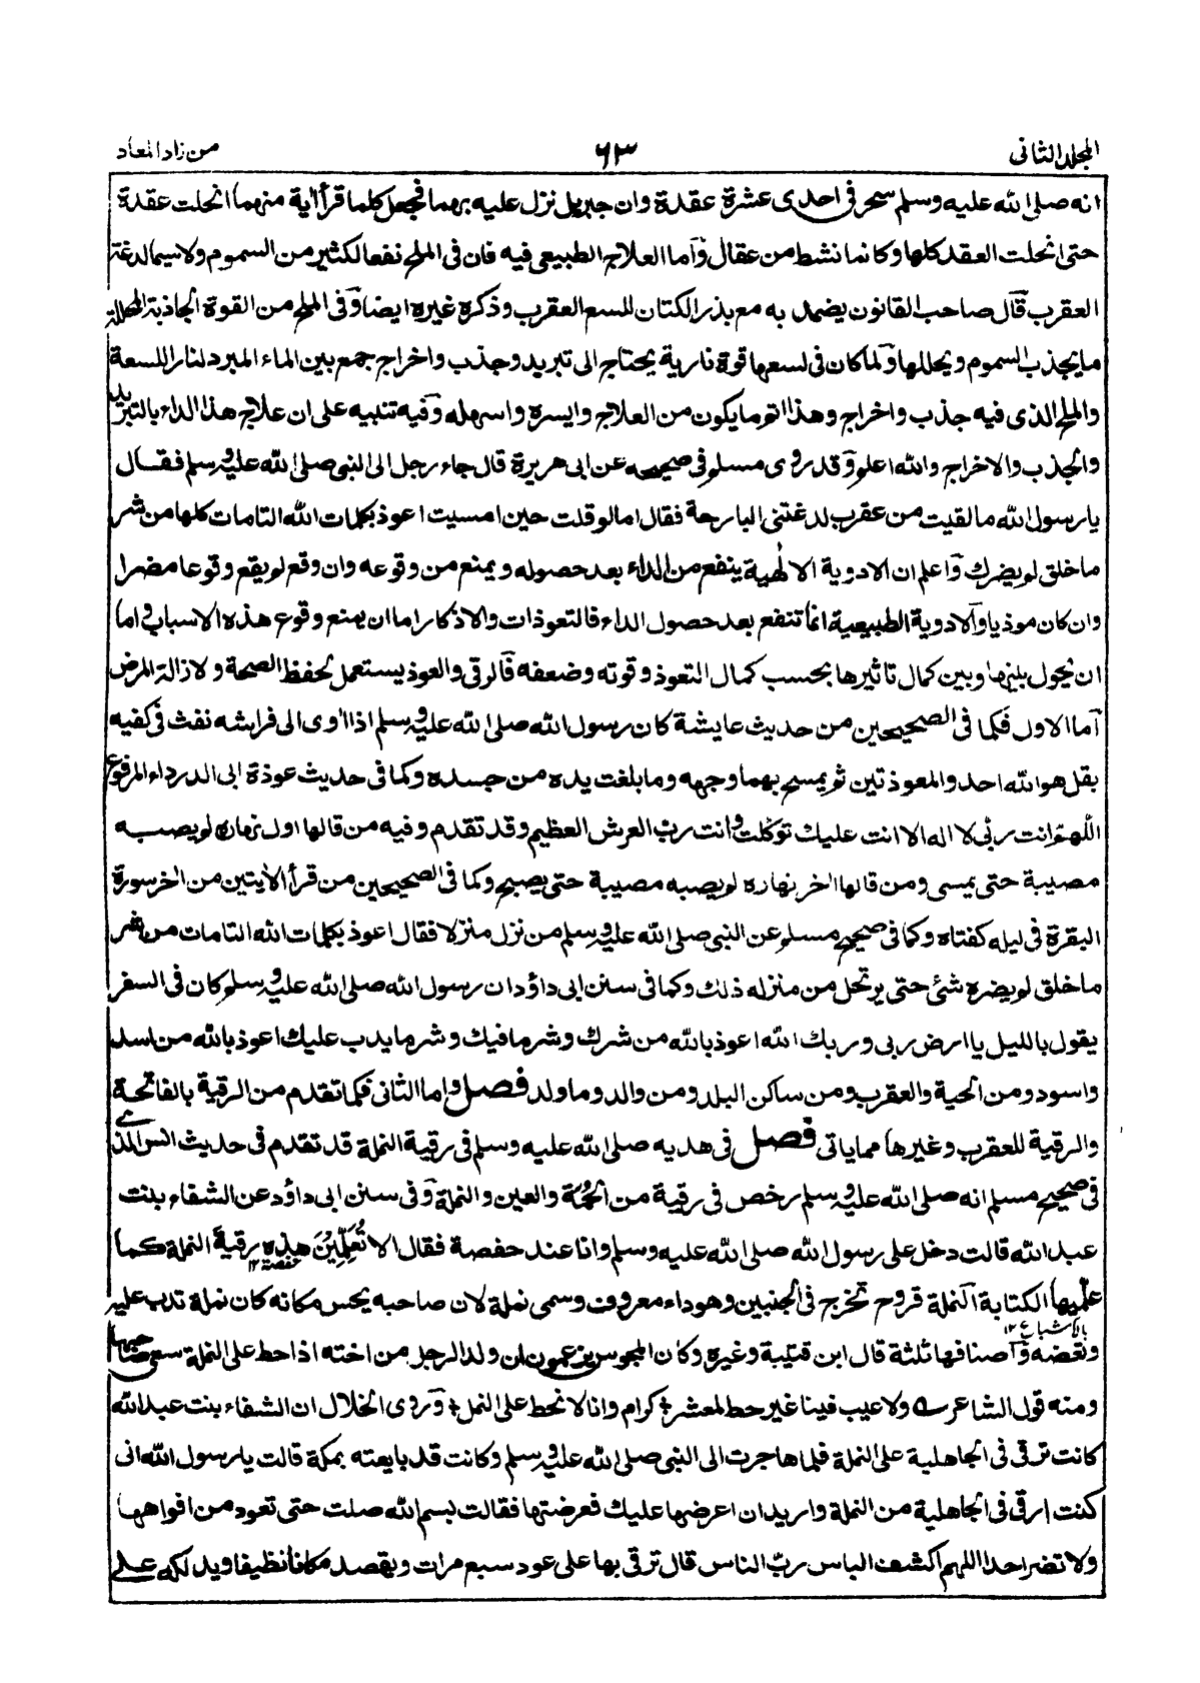 المجلد الثانى
٦٣
من زاد المعاد
انه صلى الله عليه وسلم سحر فى احدى عشرة عقدة وان جبريل نزل عليه بهما فجعل كلما قرأ اٰية منهما انحلت عقدة
حتى انحلت العقد كلها وكانما نشط من عقال وآما العلاج الطبيعى فيه فان فى الملح نفعا لكثير من السموم ولا سيما لدغة
العقرب قال صاحب القانون يضمد به مع بذر الكتان للسع العقرب وذكره غيره ايضا وفى الملح من القوة الجاذبة المحللة
ما يجذب السموم ويحللها ولما كان فى لسعها قوة نارية يحتاج الى تبريد وجذب واخراج جمع بين الماء المبرد لنار اللسعة
والملح الذى فيه جذب واخراج وهذا اتم ما يكون من العلاج وايسره واسهله وفيه تنبيه على ان علاج هذا الداء بالتبريد
والجذب والاخراج والله اعلم وقد روى مسلم فى صحيحه عن ابى هريرة قال جاء رجل الى النبى صلى الله عليه وسلم فقال
يا رسول الله ما لقيت من عقرب لدغتنى البارحة فقال اما لو قلت حين امسيت اعوذ بكلمات الله التامات كلها من شر
ما خلق لم يضرك وآعلم ان الادوية الالٰهية ينفع من الداء بعد حصوله ويمنع من وقوعه وان وقع لم يقع وقوعا مضرا
وان كان موذيا وآلادوية الطبيعية انما تنفع بعد حصول الداء فالتعوذات والاذكار اما ان يمنع وقوع هذه الاسباب واما
ان يحول بينها وبين كمال تاثيرها بحسب كمال التعوذ وقوته وضعفه فالرقى والعوذ يستعمل لحفظ الصحة ولازالة المرض
آما الاول فكما فى الصحيحين من حديث عايشة كان رسول الله صلى الله عليه وسلم اذا اٰوى الى فراشه نفث فى كفيه
بقل هو الله احد والمعوذتين ثم يمسح بهما وجهه وما بلغت يده من جسده وكما فى حديث عوذة ابى الدرداء المرفوع
اللّهم انت ربى لا اله الا انت عليك توكلت وانت ربّ العرش العظيم وقد تقدم وفيه من قالها اول نهاره لم يصبه
مصيبة حتى يمسى ومن قالها اٰخر نهاره لم يصبه مصيبة حتى يصبح وكما فى الصحيحين من قرأ الاٰيتين من اٰخر سورة
البقرة فى ليله كفتاه وكما فى صحيح مسلم عن النبى صلى الله عليه وسلم من نزل منزلا فقال اعوذ بكلمات الله التامات من شر
ما خلق لم يضره شئ حتى يرتحل من منزله ذلك وكما فى سنن ابى داؤد ان رسول الله صلى الله عليه وسلم كان فى السفر
يقول بالليل يا ارض ربى وربك الله اعوذ بالله من شرك وشر ما فيك وشر ما يدب عليك اعوذ بالله من اسد
واسود ومن الحية والعقرب ومن ساكن البلد ومن والد وما ولد فصل واما الثانى فكما تقدم من الرقية بالفاتحة
والرقية للعقرب وغيرها مما ياتى فصل فى هديه صلى الله عليه وسلم فى رقية النملة قد تقدم فى حديث انس الذى
فى صحيح مسلم انه صلى الله عليه وسلم رخص فى رقية من الحُمَة والعين والنملة وفى سنن ابى داؤد عن الشفاء بنت
عبد الله قالت دخل على رسول الله صلى الله عليه وسلم وانا عند حفصة فقال الا تُعَلِّمِيْنَ هٰذِهٖ رقية النملة كما
حفصة ١٢
علّميها الكتابة آلنملة قروح تخرج فى الجنبين وهو داء معروف وسمى نملة لان صاحبه يحس مكانه كان نملة تدب عليه
بالاشباع ١٢
وتعضه وآصنافها ثلثة قال ابن قتيبة وغيره وكان المجوس يزعمون ان ولد الرجل من اخته اذا حط على النملة سعى صاحبها
ومنه قول الشاعر ولا عيب فينا غير حط لمعشر ۞ كرام وانا لا نحط على النمل ۞ وروى الخلال ان الشفاء بنت عبد الله
كانت ترقى فى الجاهلية على النملة فلما هاجرت الى النبى صلى الله عليه وسلم وكانت قد بايعته بمكة قالت يا رسول الله انى
كنت ارقى فى الجاهلية من النملة واريد ان اعرضها عليك فعرضتها فقالت بسم الله صلت حتى تعود من افواهها
ولا تضر احدا اللهم اكشف الباس ربّ الناس قال ترقى بها على عود سبع مرات ويقصد مكانا نظيفا ويدلكه على